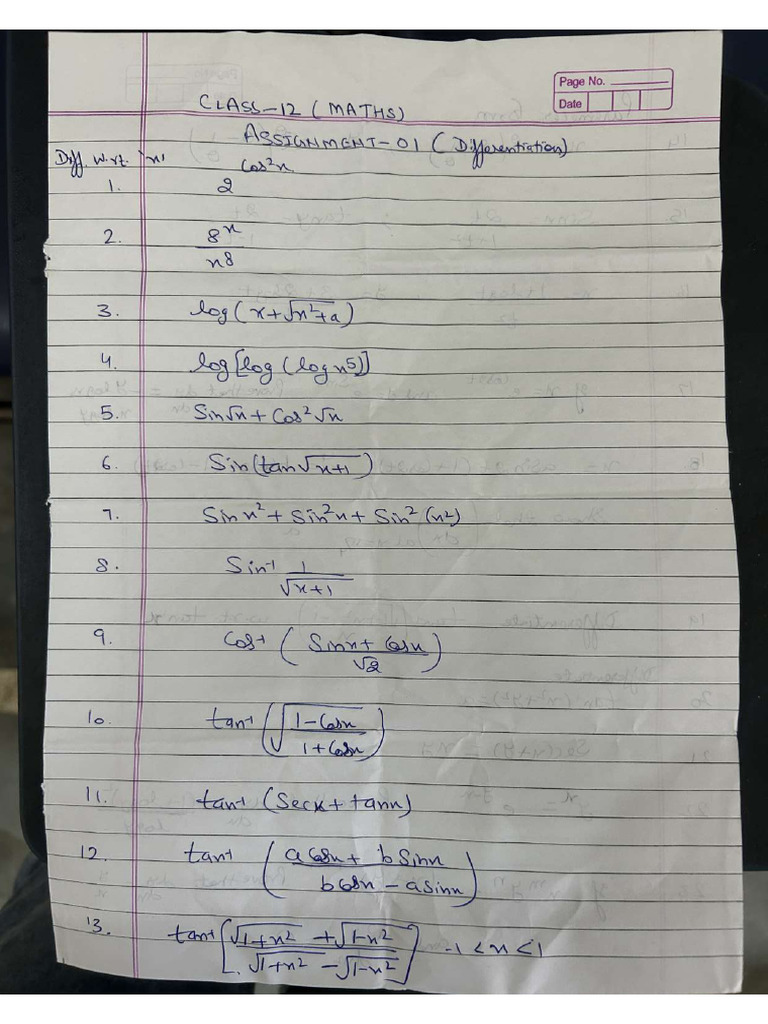 Page No.
Date
CLASS-12 (MATHS)
ASSIGNMENT-01 (Differentiation)
Diff. w.r.t. 'x'
1. 2^cos²x
2. 8^x / x8
3. log(x+√x²+a)
4. log[log(logx5)]
5. Sin√x + Cos²√x
6. Sin(tan√x+1)
7. Sinx² + Sin²x + Sin²(x²)
8. Sin⁻¹ 1/√x+1
9. Cos⁻¹ (Sinx + Cosx / √2)
10. tan⁻¹ (√1-Cosx / 1+Cosx)
11. tan⁻¹ (Secx + tanx)
12. tan⁻¹ (a Cosx + b Sinx / b Cosx - a Sinx)
13. tan⁻¹ [√1+x² + √1-x² / √1+x² - √1-x²] -1 < x < 1